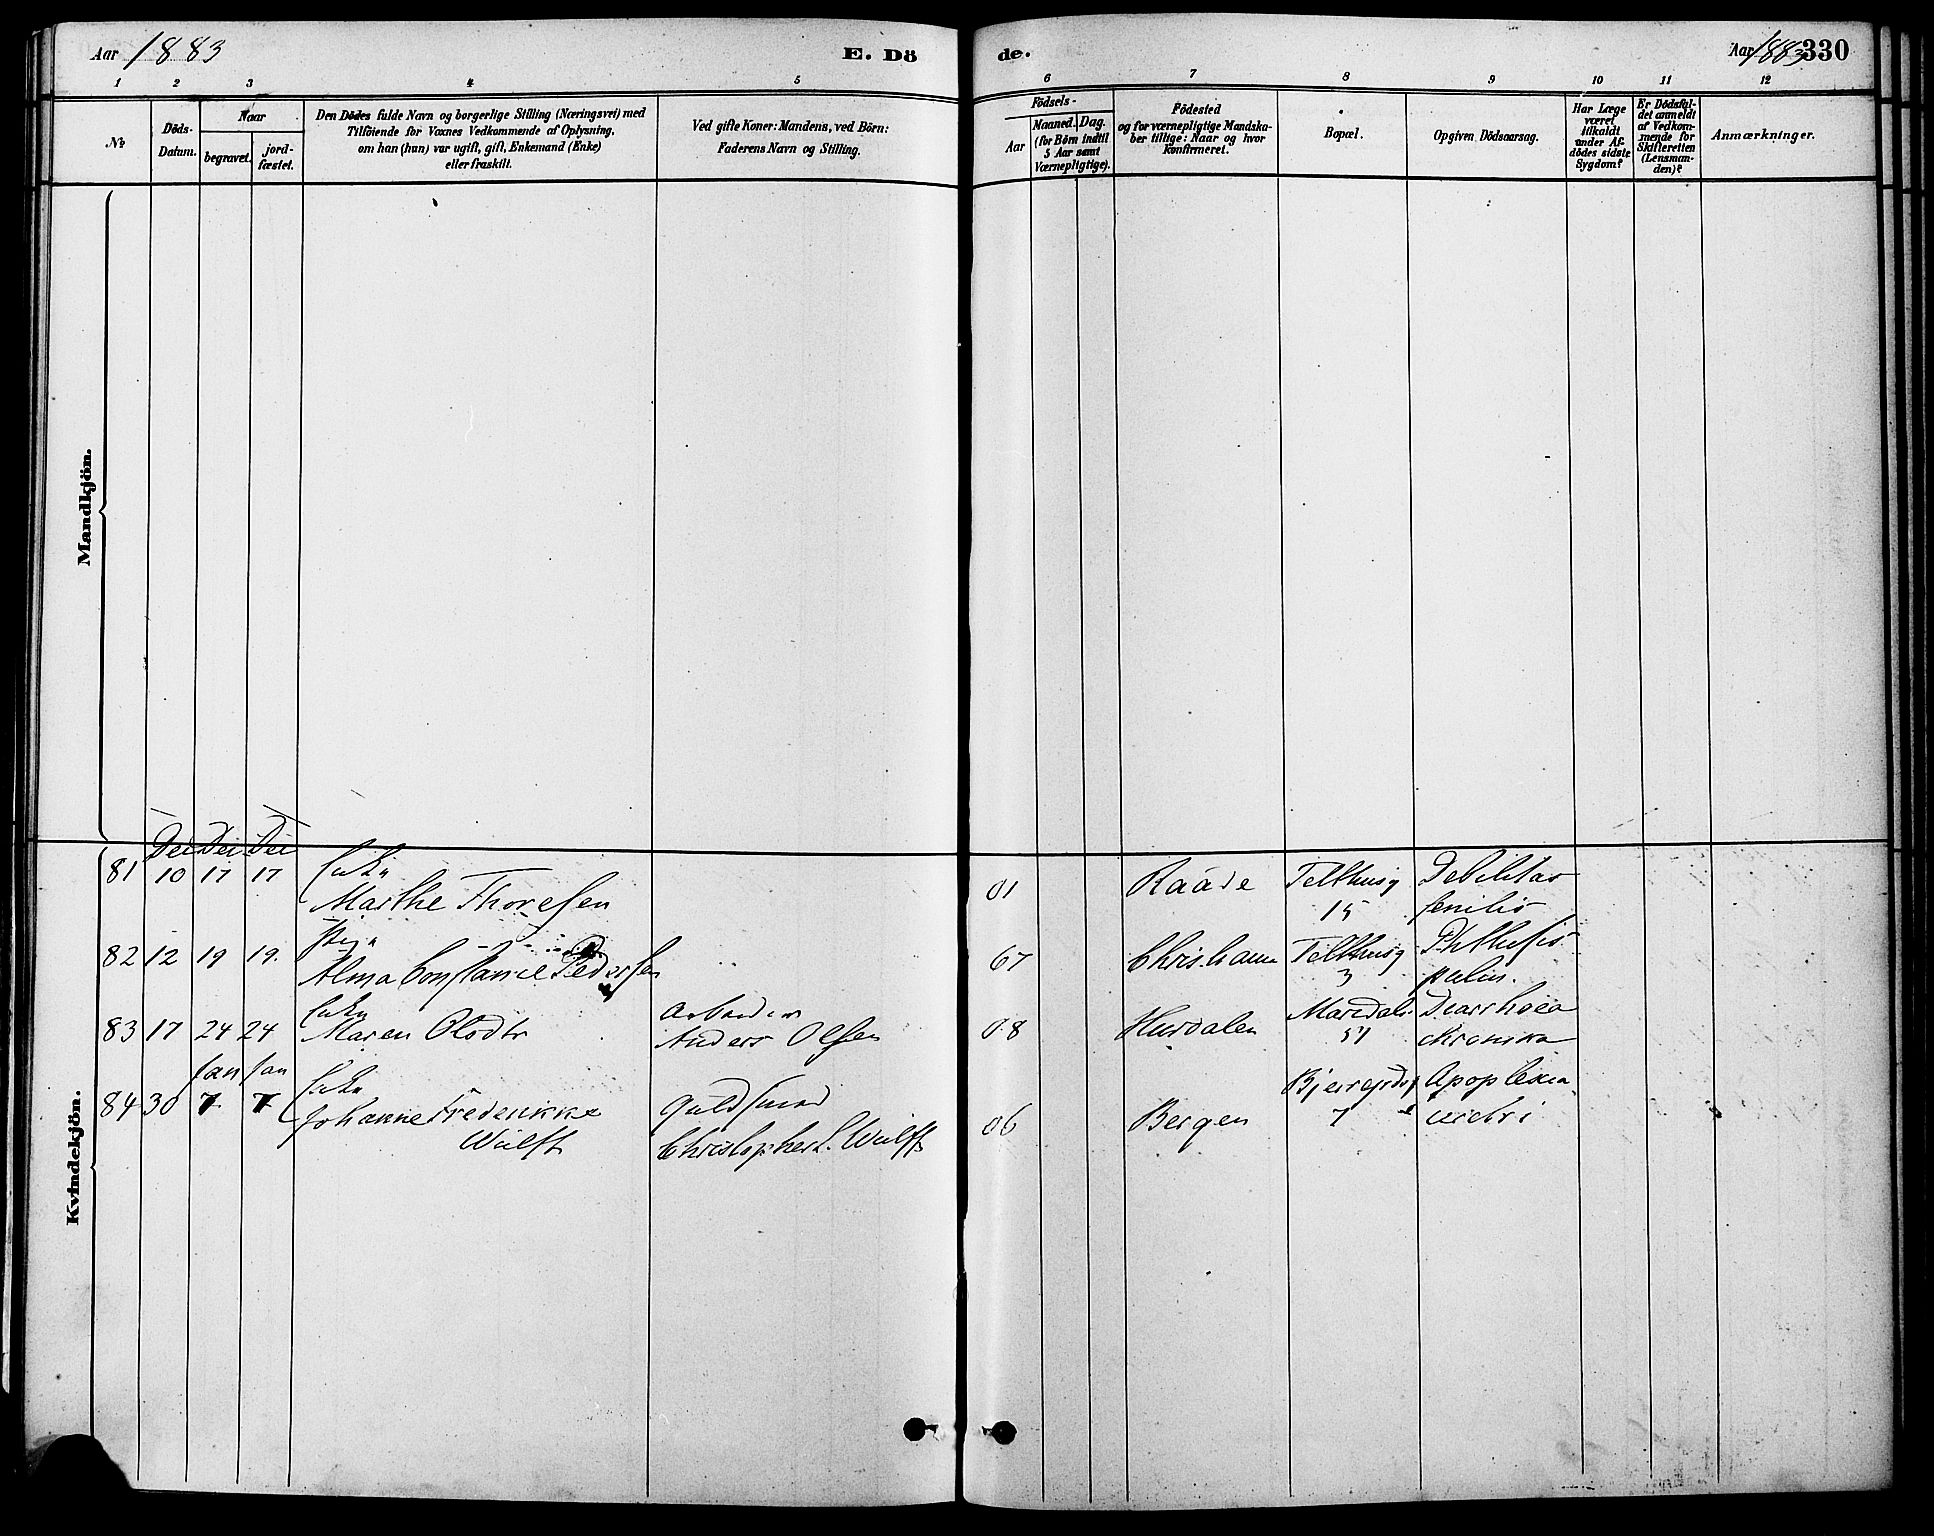 Aar 1883
E. Dö
de.
Aar 1883 330
1 2 3 4 5 6 7 8 9 10 11 12
№
Döds-
Datum.
Naar
begravet.
jord-
fæstet.
Den Dödes fulde Navn og borgerlige Stilling (Næringsvei) med
Tilföiende for Voxnes Vedkommende af Oplysning,
om han (hun) var ugift, gift, Enkemand (Enke)
eller fraskilt.
Ved gifte Koner: Mandens, ved Börn:
Faderens Navn og Stilling.
Födsels-
Aar
Maaned. Dag.
(for Börn indtil
5 Aar samt
Værnepligtige).
Födested
og for værnepligtige Mandska-
ber tillige: Naar og hvor
Konfirmeret.
Bopæl.
Opgiven Dödsaarsag.
Har Læge
været
tilkaldt
under Af-
dödes sidste
Sygdom?
Er Dödsfal-
det anmeldt
af Vedkom-
mende for
Skifteretten
(Lensman-
den)?
Anmærkninger.
Mandkjön.
Kvindekjön.
Dei Dei Dei
81 10 17 17 Enke
Marthe Thoresen
01 Raade Telthusg Debilitas
15 senilis
82 12 19 19. Pige
Alma Constance Pedersen
67 Christiania Telthusg Phthisis
3 pulm.
83 17 24 24 Enke
Maren Olsdtr
Arbeider
Anders Olsen
08 Hurdalen Maridals Diarrhoea
57 chronika
Jan Jan
84 30 7 7 Enke
Johanne Frederikke
Wulff
Guldsmed
Christopher L. Wulff
06 Bergen 7 Apoplexia
cerebri